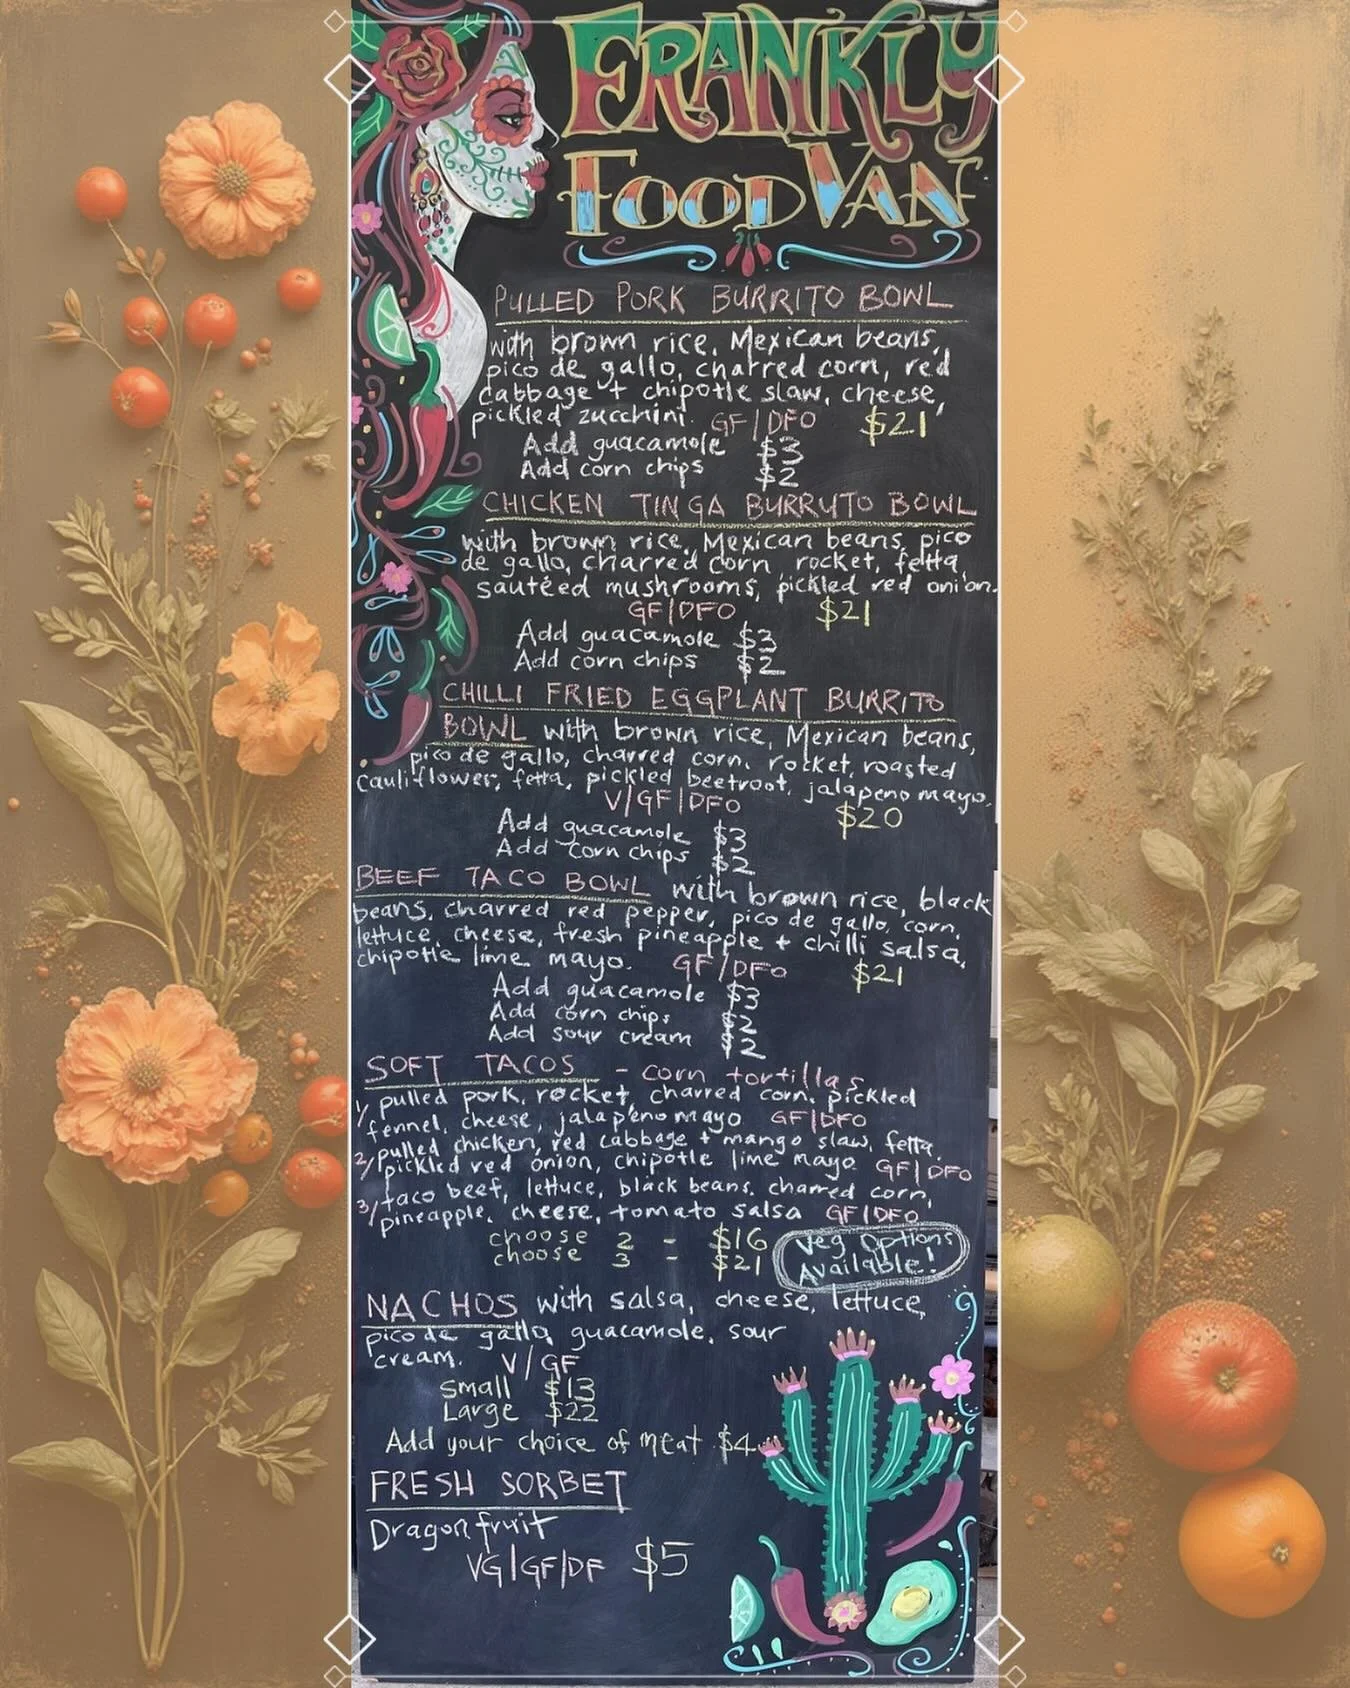 FRANKLY
FOOD VAN
PULLED PORK BURRITO BOWL
with brown rice, Mexican beans,
pico de gallo, charred corn, red
cabbage + chipotle slaw, cheese,
pickled zucchini. GF/DFO $21
Add guacamole $3
Add corn chips $2
CHICKEN TINGA BURRUTO BOWL
with brown rice, Mexican beans, pico
de gallo, charred corn rocket, fetta,
sautéed mushrooms, pickled red onion.
GF/DFO $21
Add guacamole $3
Add corn chips $2
CHILLI FRIED EGGPLANT BURRITO
BOWL with brown rice, Mexican beans,
pico de gallo, charred corn, rocket, roasted
cauliflower, fetta, pickled beetroot, jalapeno mayo,
V/GF/DFO $20
Add guacamole $3
Add corn chips $2
BEEF TACO BOWL with brown rice, black
beans, charred red pepper, pico de gallo, corn,
lettuce, cheese, fresh pineapple + chilli salsa,
chipotle lime mayo. GF/DFO $21
Add guacamole $3
Add corn chips $2
Add sour cream $2
SOFT TACOS - corn tortillas
1/ pulled pork, rocket, charred corn, pickled
fennel, cheese, jalapeno mayo GF/DFO
2/ pulled chicken, red cabbage + mango slaw, fetta,
pickled red onion, chipotle lime mayo GF/DFO
3/ taco beef, lettuce, black beans, charred corn,
pineapple, cheese, tomato salsa GF/DFO
choose 2 = $16
choose 3 = $21
Veg Options
Available!
NACHOS with salsa, cheese, lettuce,
pico de gallo, guacamole, sour
cream. V/GF
Small $13
Large $22
Add your choice of meat $4
FRESH SORBET
Dragonfruit
VG/GF/DF $5